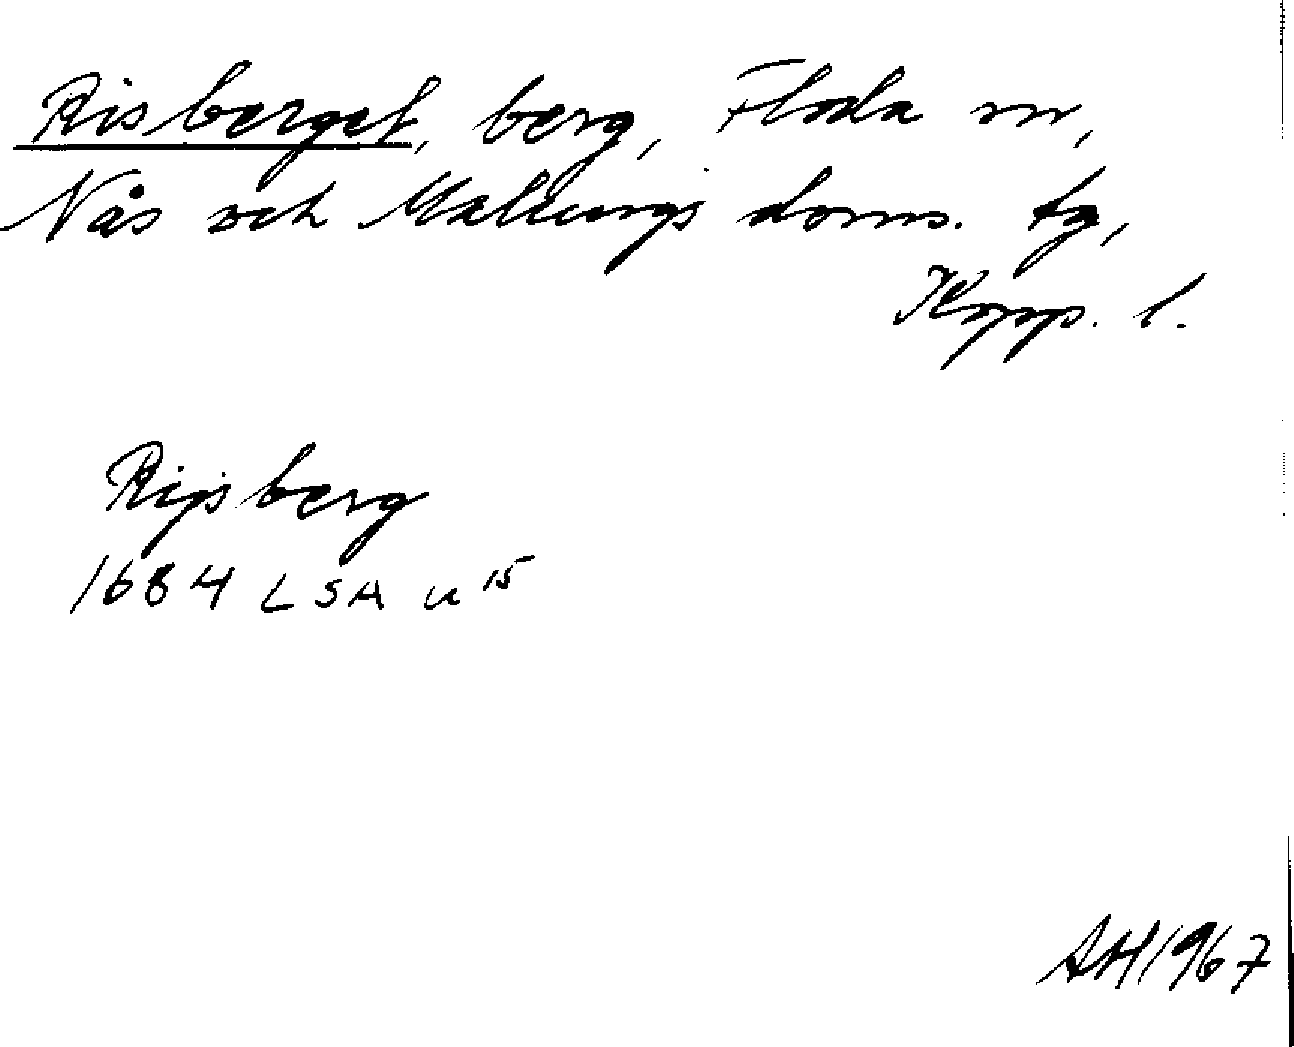 Risberget, berg, Floda sn,
Nås och Malungs doms. tg,
Kopp. l.
Rijsberg
1684 LSA u 15
AH 1967